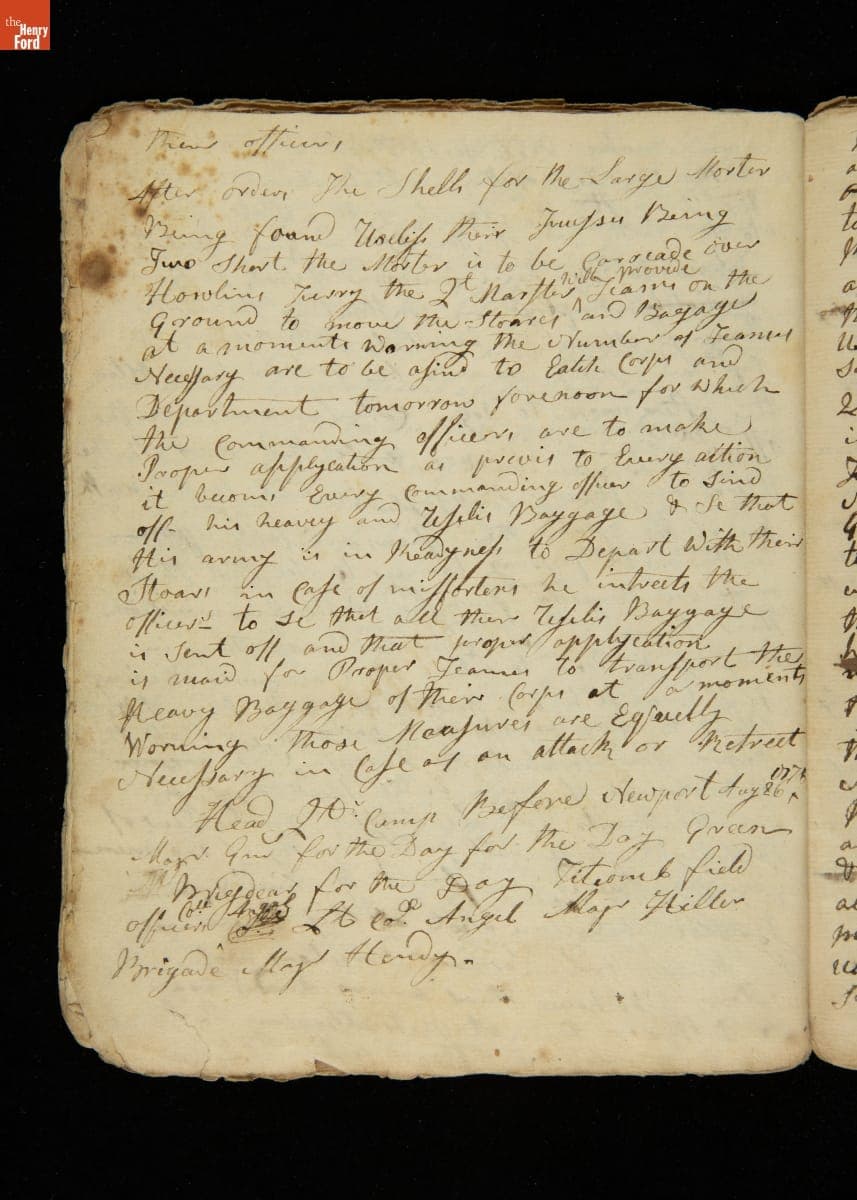 the Henry Ford
their officers
After orders The Shells for the Large Morter
Being found Useliss their Fuesses Being
Two Short the Morter is to be Carreade over
Howlins Furry the Qt Marster Will provide Teams on the
Ground to move the Stoares and Bagage
at a moments Warning the Number of Teames
Necessary are to be asind to Eatch Corps and
Department tomorrow forenoon for which
the Commanding officers are to make
Proper applycation as previs to Every action
it becoms Every Commanding officer to Sind
off his heavey and Usslis Baggage & Se that
His army is in Readyness to Depart With their
Stoars in Case of missfortens he intreets the
officers to Se that all their Usslis Baggage
is Sent off and that proper applycation
is maid for Proper Teames to transport the
Heavy Baggage of their Corps at a moments
Worning Those Measures are Equelly
Necessary in Case of an attack or Retreet
Head Qtrs Camp Before Newport Aug 26 1778
Majr Genl for the Day for the Day Green
Brigdear for the Day Titcomb field
officers Coll Lt Col Angel Majr Hiller
Brigade Majr Hendy.